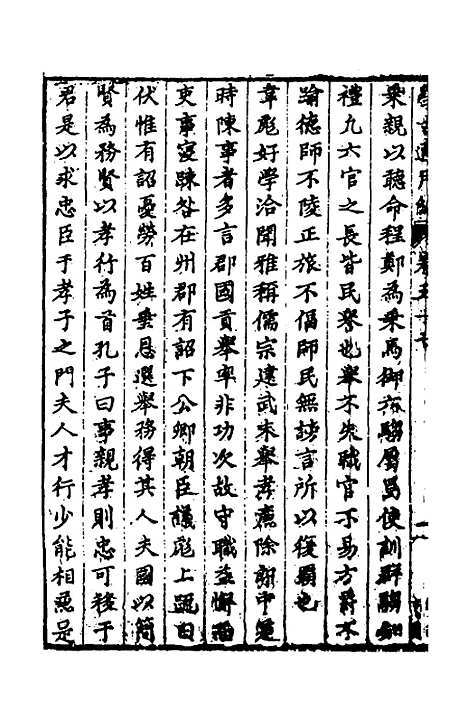 乗親以聽命程鄭為乗馬御六騶屬焉使訓群騶知
禮凡六官之長皆民譽也舉不失職官不易方爵不
踰德師不陵正旅不偪師民無謗言所以復覇也
韋彪好學洽聞雅稱儒宗建武末舉孝廉除郎中是
時陳事者多言郡國貢舉率非功次故守職益懈而
吏事寖踈咎在州郡有詔下公卿朝臣議彪上疏曰
伏惟有詔憂勞百姓垂恩選舉務得其人夫國以簡
賢為務賢以孝行為首孔子曰事親孝則忠可移于
君是以求忠臣于孝子之門夫人才行少能相兼是